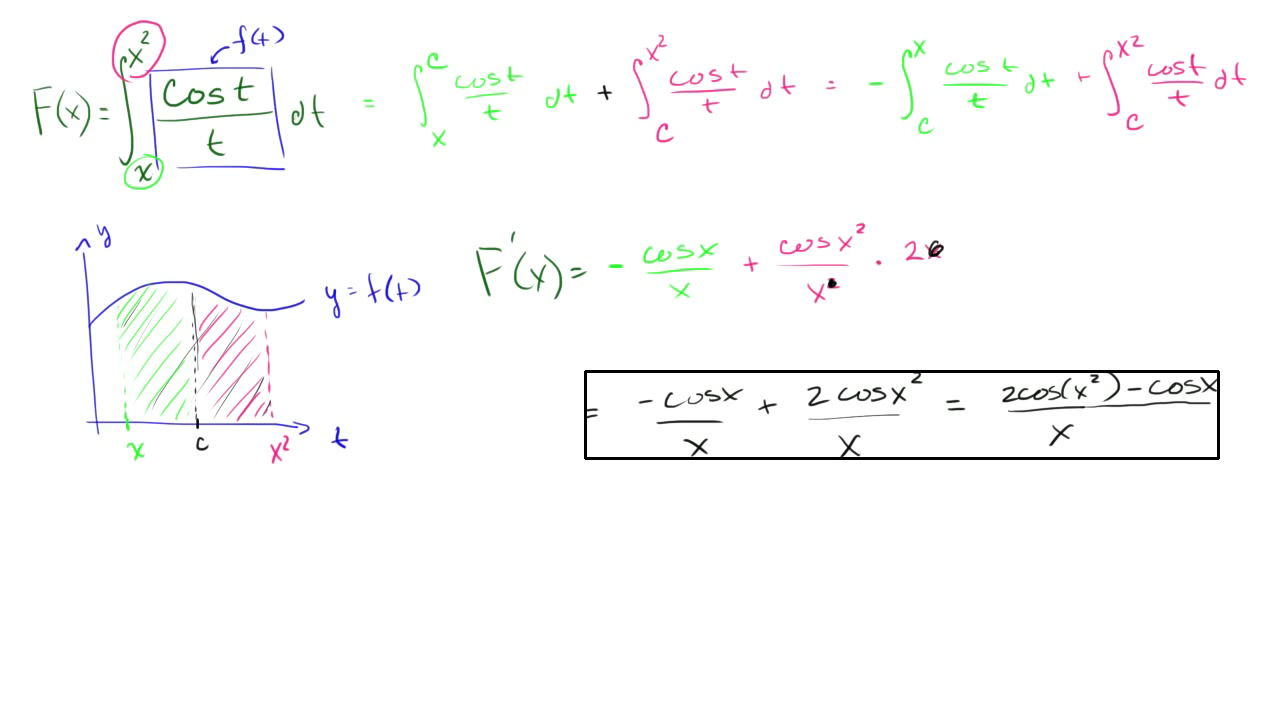 f(t)
F(x) = ∫_x^{x²} cos t / t dt = ∫_x^c cos t / t dt + ∫_c^{x²} cos t / t dt = - ∫_c^x cos t / t dt + ∫_c^{x²} cos t / t dt
y
F'(x) = - cos x / x + cos x² / x · 2
y = f(t)
= -cos x / x + 2 cos x² / x = 2cos(x²) - cos x / x
x c x² t